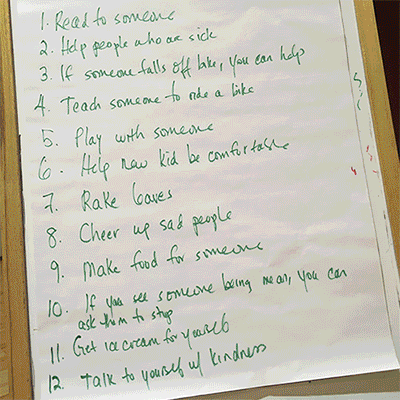 1. Read to someone
2. Help people who are sick
3. If someone falls off bike, you can help
4. Teach someone to ride a bike
5. Play with someone
6. Help new kid be comfortable
7. Rake leaves
8. Cheer up sad people
9. Make food for someone
10. If you see someone being mean, you can
ask them to stop
11. Get ice cream for yourself
12. Talk to yourself w/ kindness